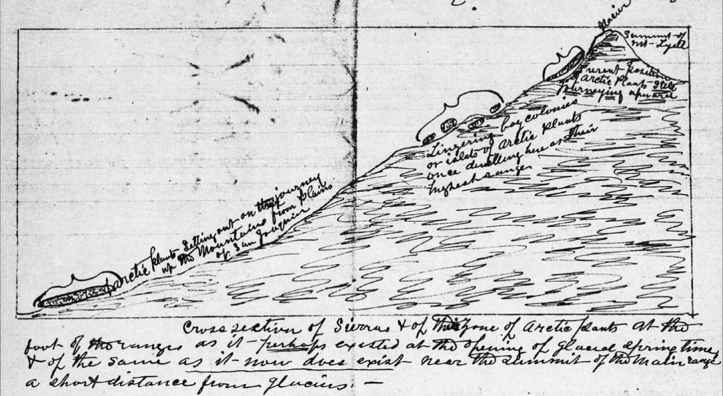 Glacier
Summit of
Mt. Lyell
Present Position
Arctic Plants still
journeying upward
Lingering bog colonies
or islets of Arctic Plants
once dwelling here as their
highest range
Arctic plants setting out on the journey
up the Mountains from plains
of San Joaquin
Cross section of Sierras & of the zone of Arctic plants at the
foot of the ranges as it perhaps existed at the opening of glacial spring time
& of the same as it now does exist near the summit of the main range
a short distance from glaciers. —